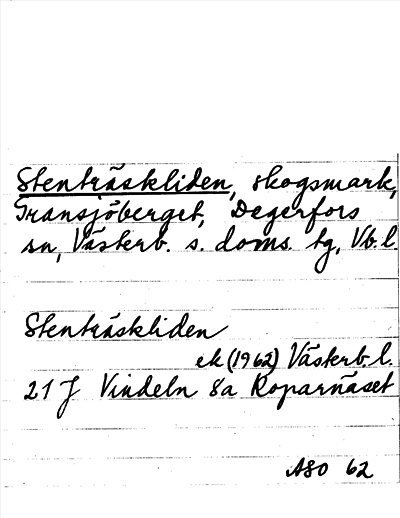 Stenträskliden, skogsmark,
Transjöberget, Degerfors
sn, Västerb. s. doms. tg, Vb.l.
Stenträskliden
ek (1962) Västerb.l.
21 J Vindeln 8a Roparnäset
ASO 62